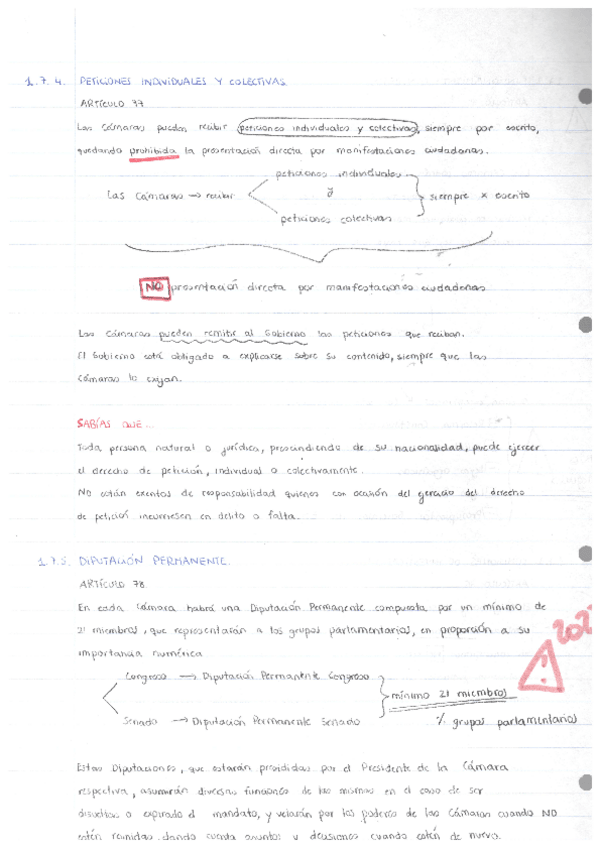 1.7.4. PETICIONES INDIVIDUALES Y COLECTIVAS
ARTÍCULO 77
Las Cámaras pueden recibir peticiones individuales y colectivas, siempre por escrito,
quedando prohibida la presentación directa por manifestaciones ciudadanas.
peticiones individuales
Las Cámaras → recibir y siempre x escrito
peticiones colectivas
NO presentación directa por manifestaciones ciudadanas
Las Cámaras pueden remitir al Gobierno las peticiones que reciban.
El Gobierno está obligado a explicarse sobre su contenido, siempre que las
Cámaras lo exijan.
SABÍAS QUE...
Toda persona natural o jurídica, prescindiendo de su nacionalidad, puede ejercer
el derecho de petición, individual o colectivamente.
NO están exentos de responsabilidad quienes con ocasión del ejercicio del derecho
de petición incurriesen en delito o falta.
1.7.5. DIPUTACIÓN PERMANENTE.
ARTÍCULO 78
En cada Cámara habrá una Diputación Permanente compuesta por un mínimo de
21 miembros, que representarán a los grupos parlamentarios, en proporción a su
importancia numérica
Congreso → Diputación Permanente Congreso
mínimo 21 miembros
Senado → Diputación Permanente Senado
% grupos parlamentarios
Estas Diputaciones, que estarán presididas por el Presidente de la Cámara
respectiva, asumirán diversas funciones de las mismas en el caso de ser
disueltas o expirado el mandato, y velarán por los poderes de las Cámaras cuando NO
estén reunidas dando cuenta asuntos y decisiones cuando estén de nuevo.